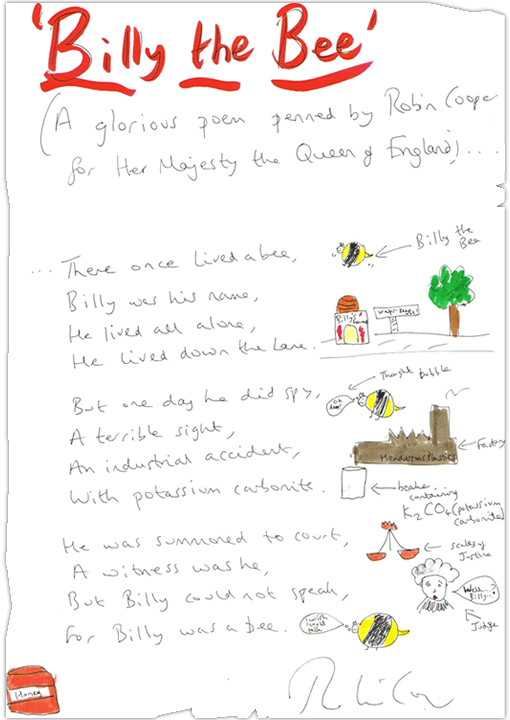 'Billy the Bee'
(A glorious poem penned by Robin Cooper
for Her Majesty the Queen of England)....
... There once lived a bee,
Billy the Bee
Billy was his name,
He lived all alone,
He lived down the lane.
Billy's
Thought bubble
But one day he did spy,
oh dear
A terrible sight,
Factory
An industrial accident,
Hendersons Plastics
With potassium carbonite.
beaker containing
K2CO4 (potassium carbonite)
He was summoned to court,
scales of Justice
A witness was he,
But Billy could not speak,
Well...? Billy..?
Judge
For Billy was a bee.
I wish I could talk
Honey